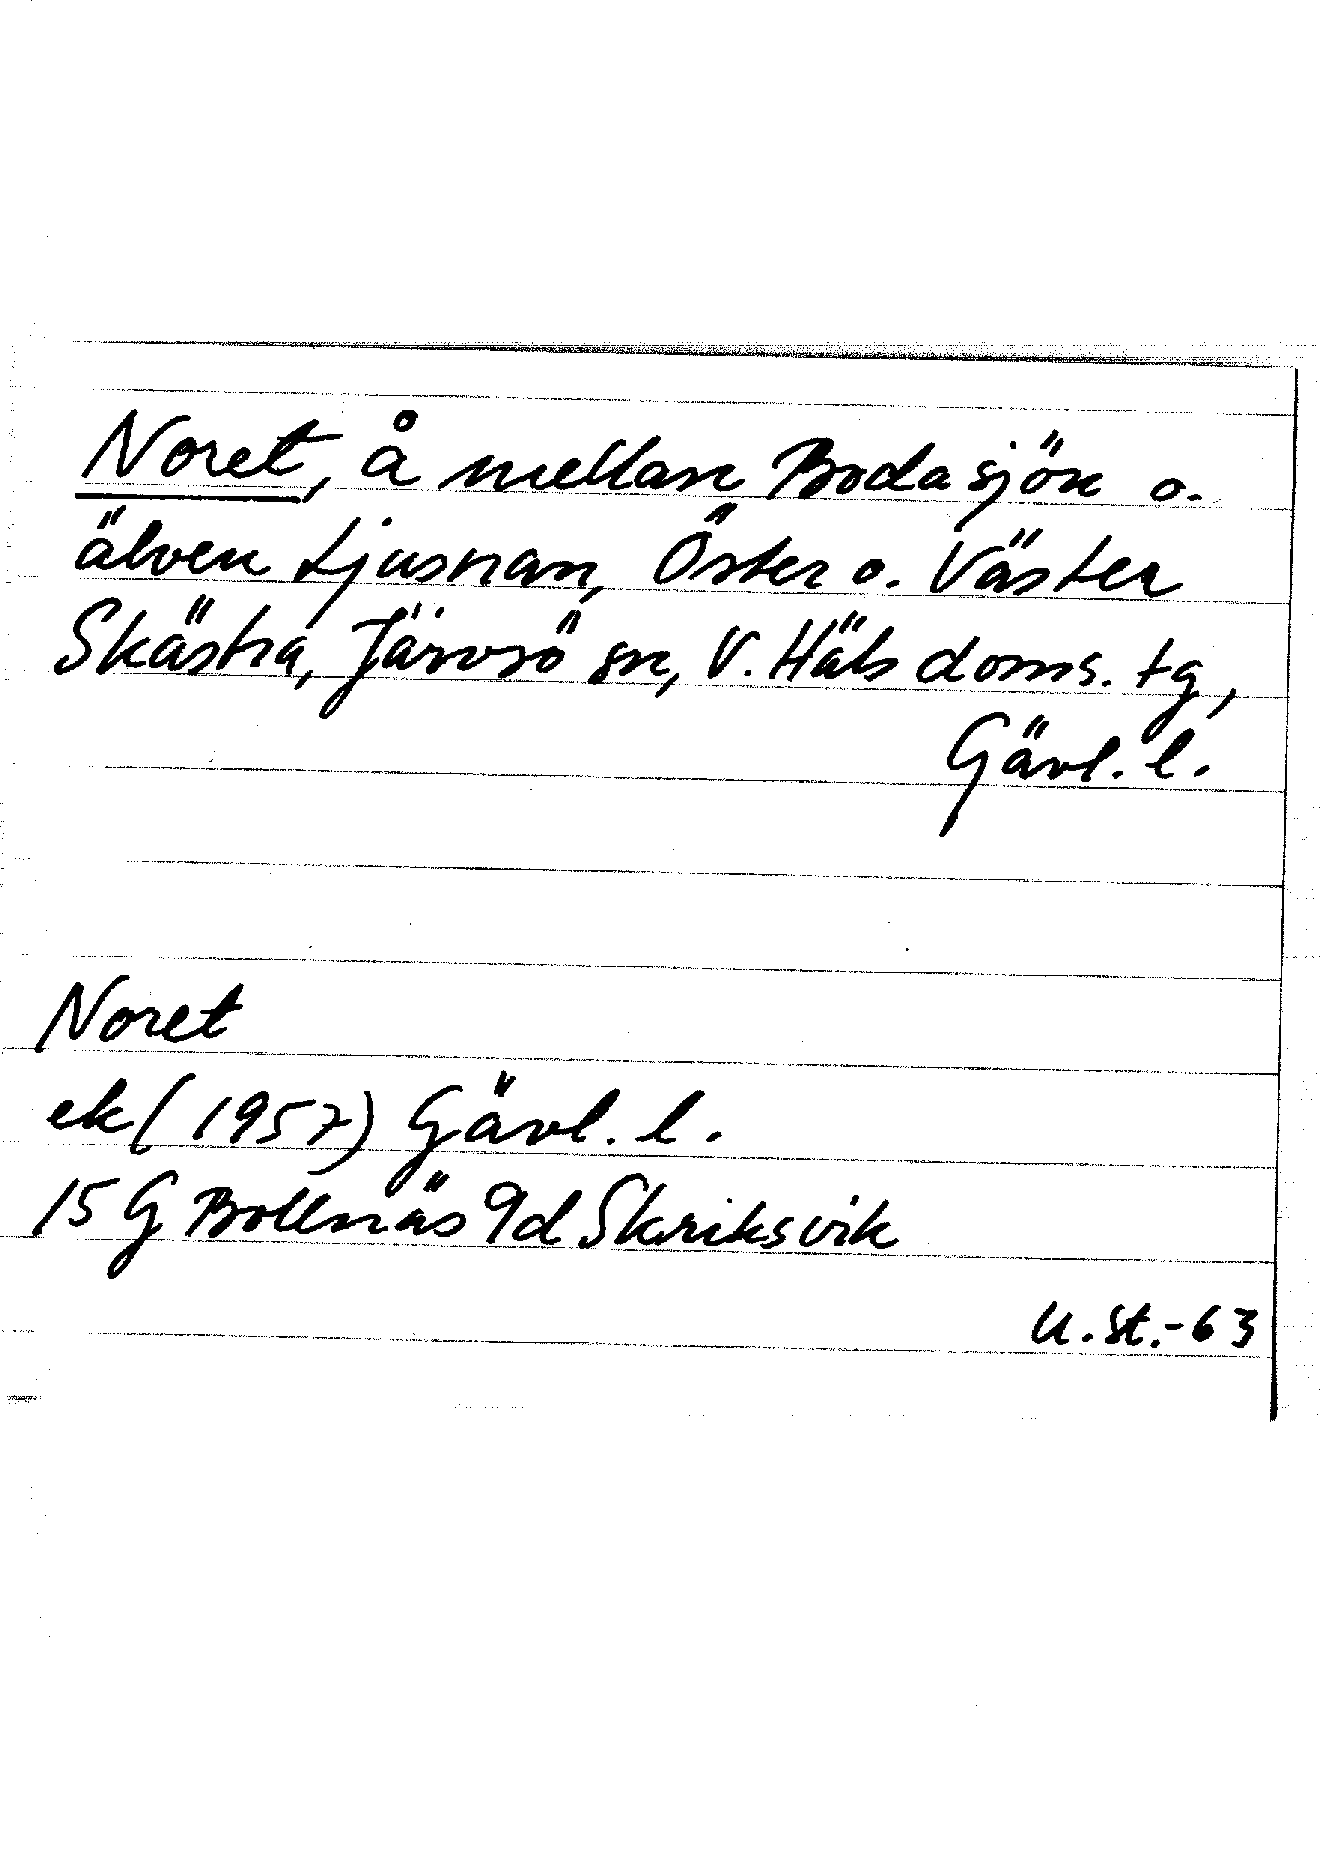 Noret, å mellan Bodasjön o.
älven Ljusnan, Öster o. Väster
Skästra, Järvsö sn, V. Häls doms. tg,
Gävl. l.
Noret
ek (1957) Gävl. l.
15 G Bollnäs 9d Skriksvik
U.St.-63